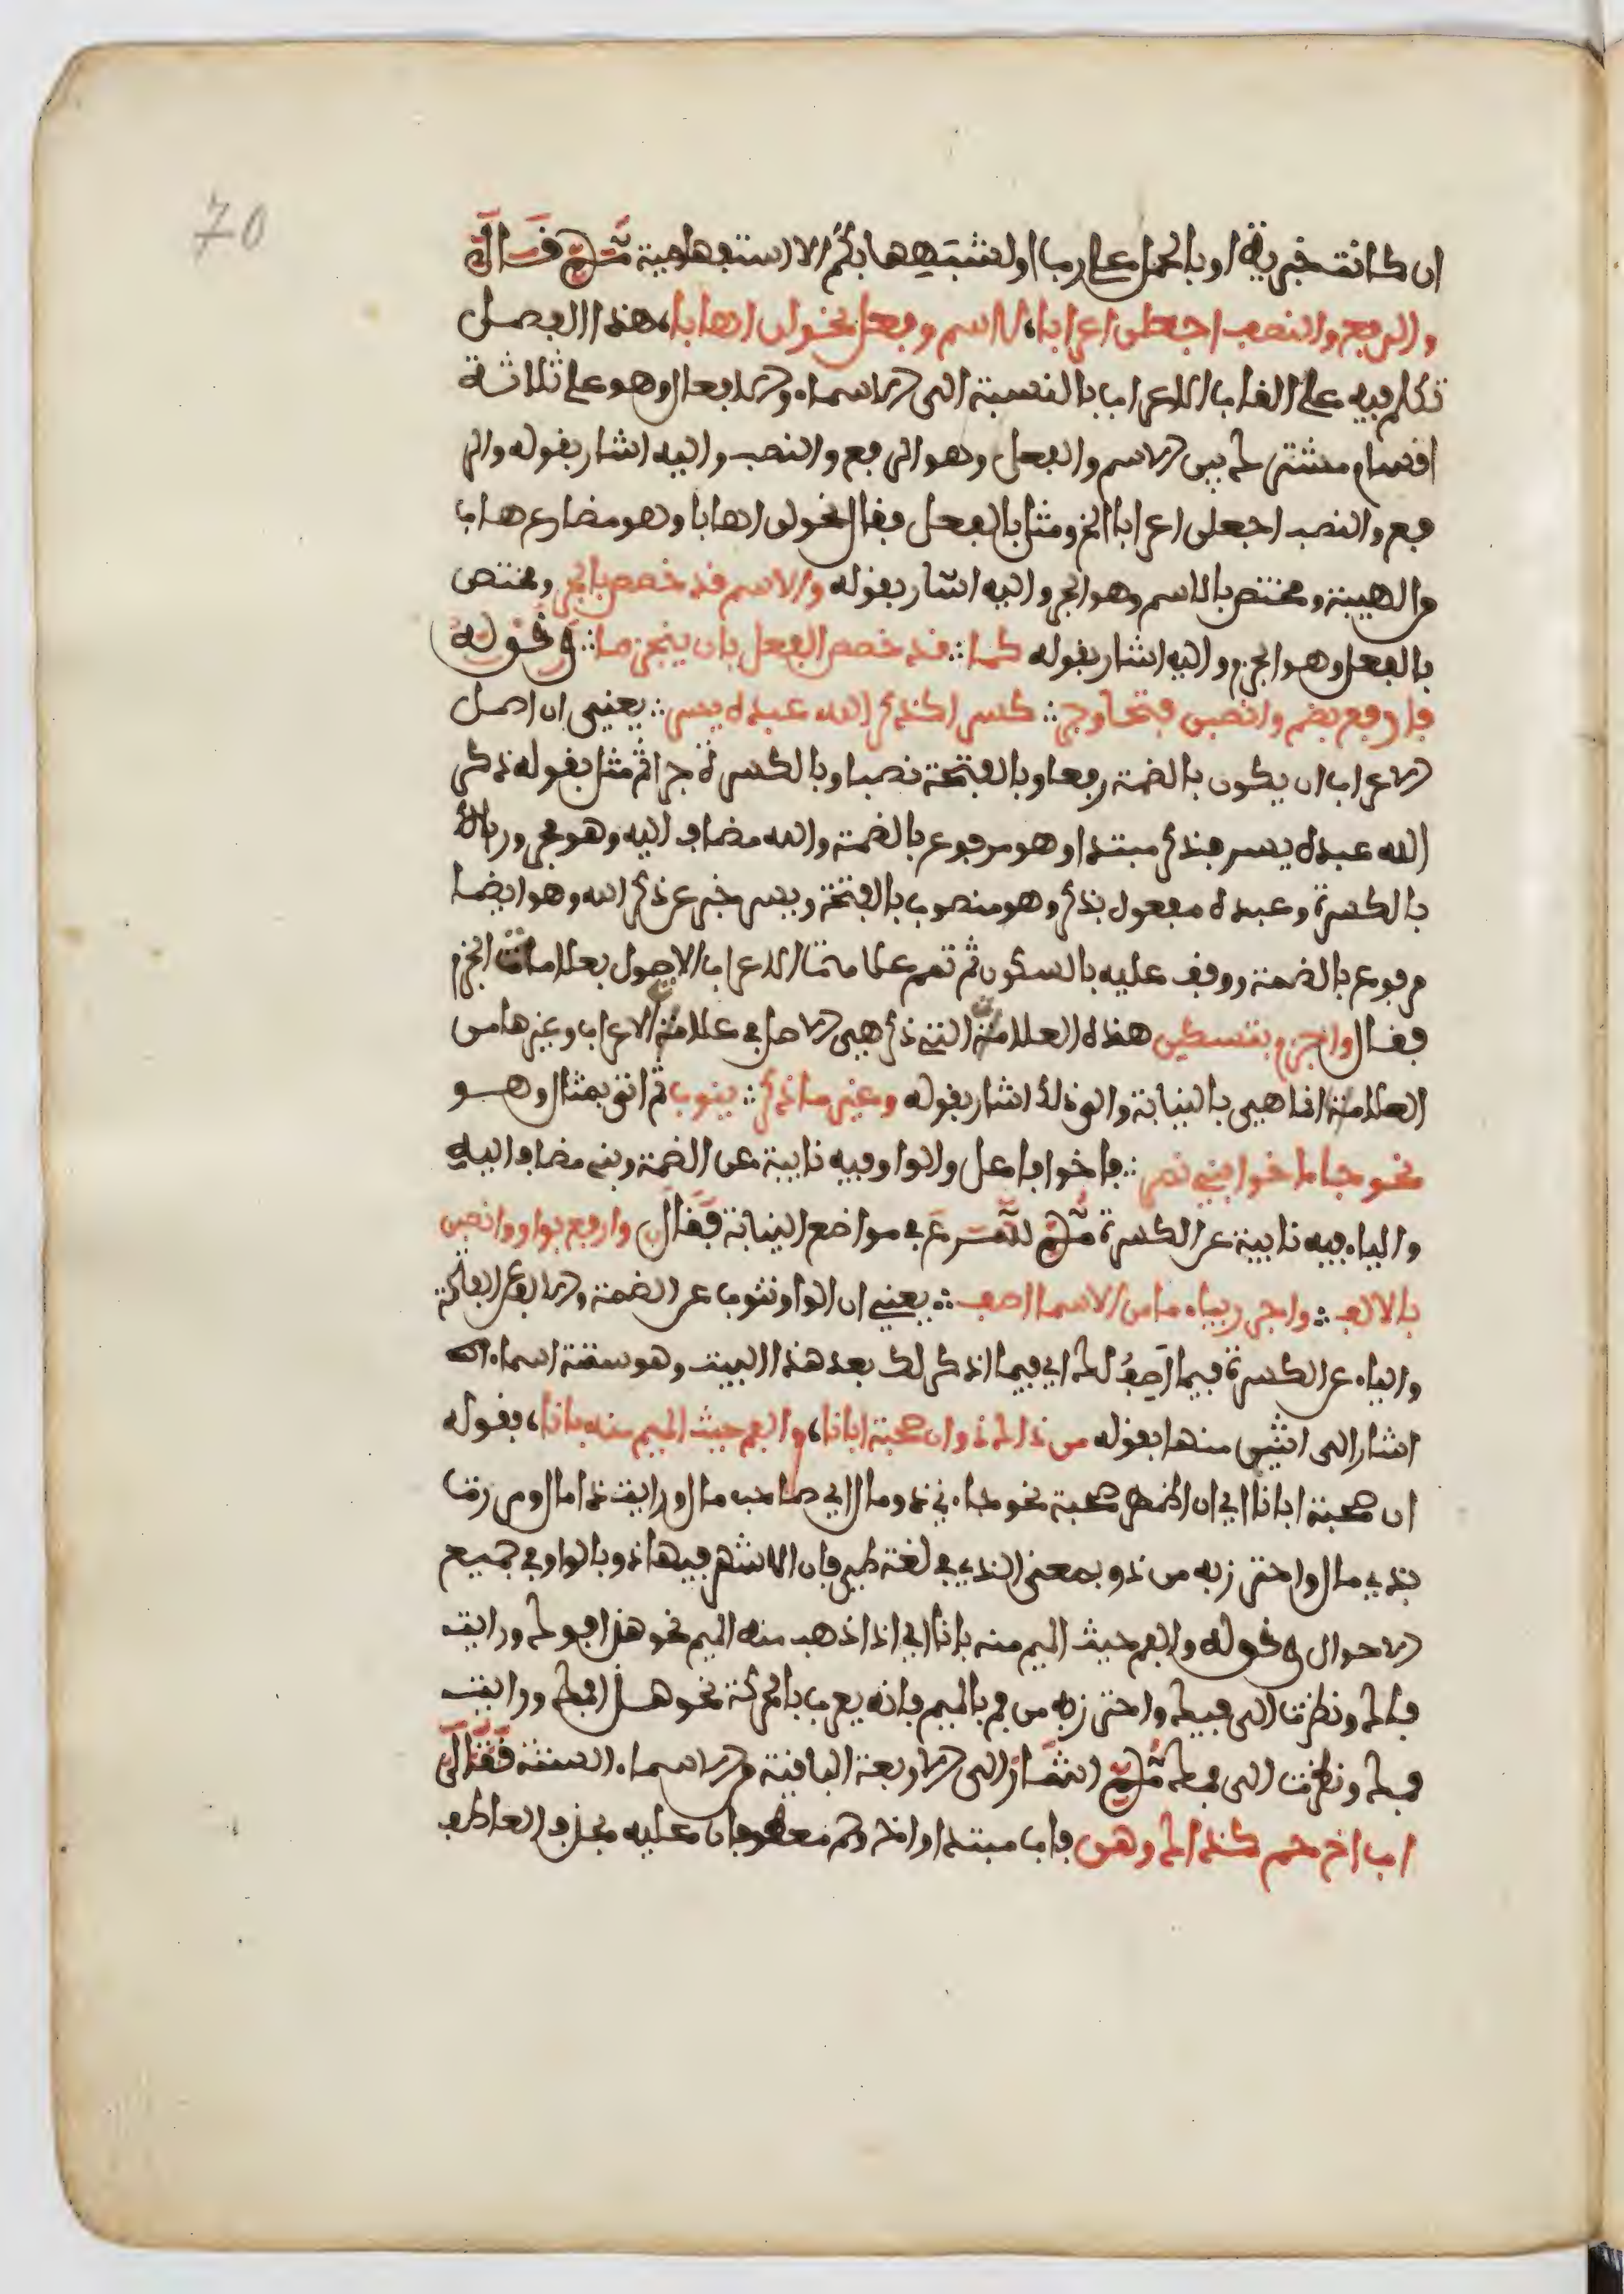 70
ان كانت خبرية او بالحمل على رب او لشبهها بكم الاستفهامية ثم قال
والرفع والنصب اجعلن اعرابا، لاسم وفعل نحو لن اهابا، هذا الفصل
تكلم فيه على القاب الاعراب بالنسبة الى الاسماء والافعال وهو على ثلاثة
اقسام مشترك بين الاسم والفعل وهو الرفع والنصب واليه اشار بقوله والر
فع والنصب اجعلن اعرابا الخ ومثل بالفعل فقال نحو لن اهابا وهو مضارع هاب
من الهيبة ومختص بالاسم وهو الجر واليه اشار بقوله والاسم قد خصص بالجر ومختص
بالفعل وهو الجزم واليه اشار بقوله كما :. قد خصص الفعل بان ينجزما :. وقوله
فارفع بضم وانصبن فتحا وجر :. كسرا كذكر الله عبده يسر :. يعني ان اصل
الاعراب ان يكون بالضمة رفعا وبالفتحة نصبا وبالكسرة جرا ثم مثل بقوله ذكر
الله عبده يسر فذكر مبتدا وهو مرفوع بالضمة والله مضاف اليه وهو مجرور
بالكسرة وعبده مفعول بذكر وهو منصوب بالفتحة ويسر خبر عن ذكر الله وهو ايضا
مرفوع بالضمة ووقف عليه بالسكون ثم تمم علامات الاعراب الاصول بعلامات الجزم
فقال واجزم بتسكين هذه العلامة التي ذكر هي الاصل في علامة الاعراب وغيرها من
العلامة انما هي بالنيابة والى ذلك اشار بقوله وغير ما ذكر :. ينوب ثم اتى بمثال وهو
نحو جا اخو بني نمر :. فاخو فاعل والواو فيه نايبة عن الضمة وبني مضاف اليه
والياء فيه نايبة عن الكسرة ثم شرع في مواضع النيابة فقال وارفع بواو وانصبن
بالالف :. واجرر بياء ما من الاسما اصف :. يعني ان الواو تنوب عن الضمة والالف عن الفتحة
والياء عن الكسرة فيما اصف لك اي فيما اذكر لك بعد هذا البيت وهو ستة اسماء
اشار الى اثنين منها بقوله من ذاك ذو ان صحبة ابانا، والفم حيث الميم منه بانا، فقوله
ان صحبة ابانا اي ان اظهر صحبة نحو جاءني ذو مال اي صاحب مال ورايت ذا مال ومررت
بذي مال واحترز به من ذو بمعنى الذي في لغة طيئ فان الاشهر فيها ذو بالواو في جميع
الاحوال وقوله والفم حيث الميم منه بانا اي اذا ذهب منه الميم نحو هذا فوك ورايت
فاك ونظرت الى فيك واحترز به من فم بالميم فانه يعرب بالحركة نحو هذا فمك ورايت
فمك ونظرت الى فمك ثم اشار الى الاربعة الباقية من الاسماء الستة فقال
اب اخ حم كذاك وهن فاب مبتدا واخ وحم معطوفان عليه بحذف العاطف